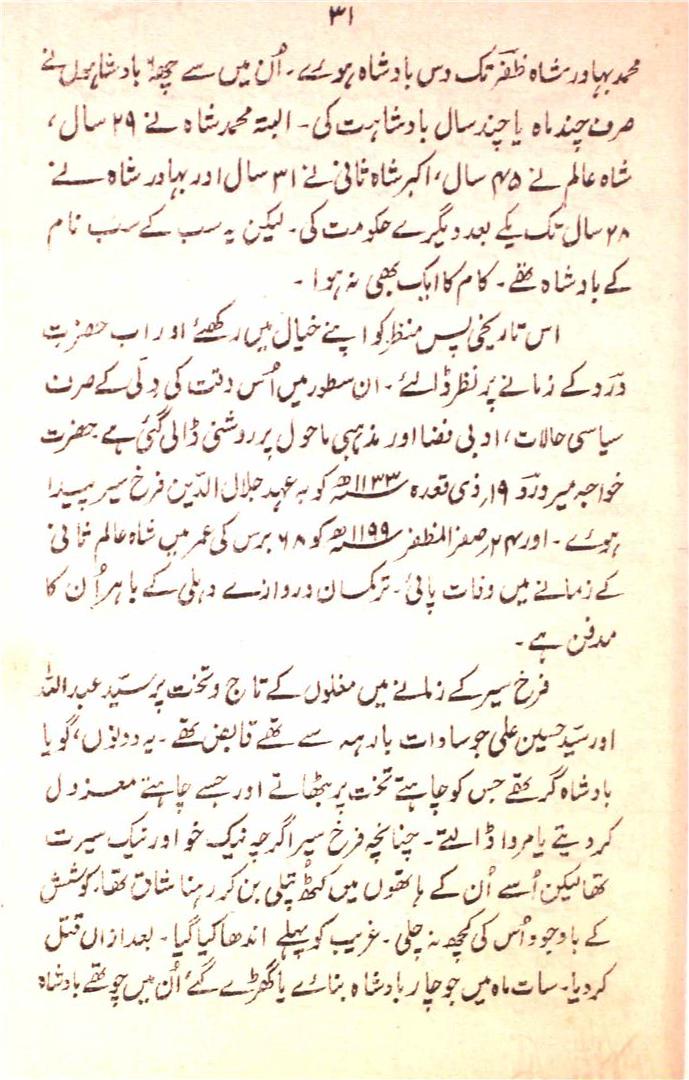 ۳۱
محمد بہادر شاہ ظفر تک دس بادشاہ ہوئے۔ اُن میں سے چھ بادشاہوں نے
صرف چند ماہ یا چند سال بادشاہت کی۔ البتہ محمد شاہ نے ۲۹ سال،
شاہ عالم نے ۴۵ سال، اکبر شاہ ثانی نے ۳۱ سال اور بہادر شاہ نے
۲۸ سال تک یکے بعد دیگرے حکومت کی۔ لیکن یہ سب کے سب نام
کے بادشاہ تھے۔ کام کا ایک بھی نہ ہوا۔
اس تاریخی پس منظر کو اپنے خیال میں رکھئے اور اب حضرت
درد کے زمانے پر نظر ڈالئے۔ ان سطور میں اُس وقت کی دِلّی کے صرف
سیاسی حالات، ادبی فضا اور مذہبی ماحول پر روشنی ڈالی گئی ہے حضرت
خواجہ میر درد ۱۹؍ ذی قعدہ ۱۱۳۳ھ کو بہ عہد جلال الدّین فرخ سیر پیدا
ہوئے۔ اور ۲۴؍ صفر المظفر ۱۱۹۹ھ کو ۶۸ برس کی عمر میں شاہ عالم ثانی
کے زمانے میں وفات پائی۔ ترکمان دروازے دہلی کے باہر اُن کا
مدفن ہے۔
فرخ سیر کے زمانے میں مغلوں کے تاج و تخت پر سیّد عبد اللہ
اور سیّد حسین علی جو سادات بارہہ سے تھے قابض تھے۔ یہ دونوں، گویا
بادشاہ گر تھے جس کو چاہتے تخت پر بٹھاتے اور جسے چاہتے معزول
کر دیتے یا مروا ڈالتے۔ چنانچہ فرخ سیر اگرچہ نیک خو اور نیک سیرت
تھا لیکن اُسے اُن کے ہاتھوں میں کٹھ پتلی بن کر رہنا شاق تھا، کوشش
کے باوجود اُس کی کچھ نہ چلی۔ غریب کو پہلے اندھا کیا گیا۔ بعد ازاں قتل
کر دیا۔ سات ماہ میں جو چار بادشاہ بنائے یا گھڑے گئے اُن میں چوتھے بادشاہ